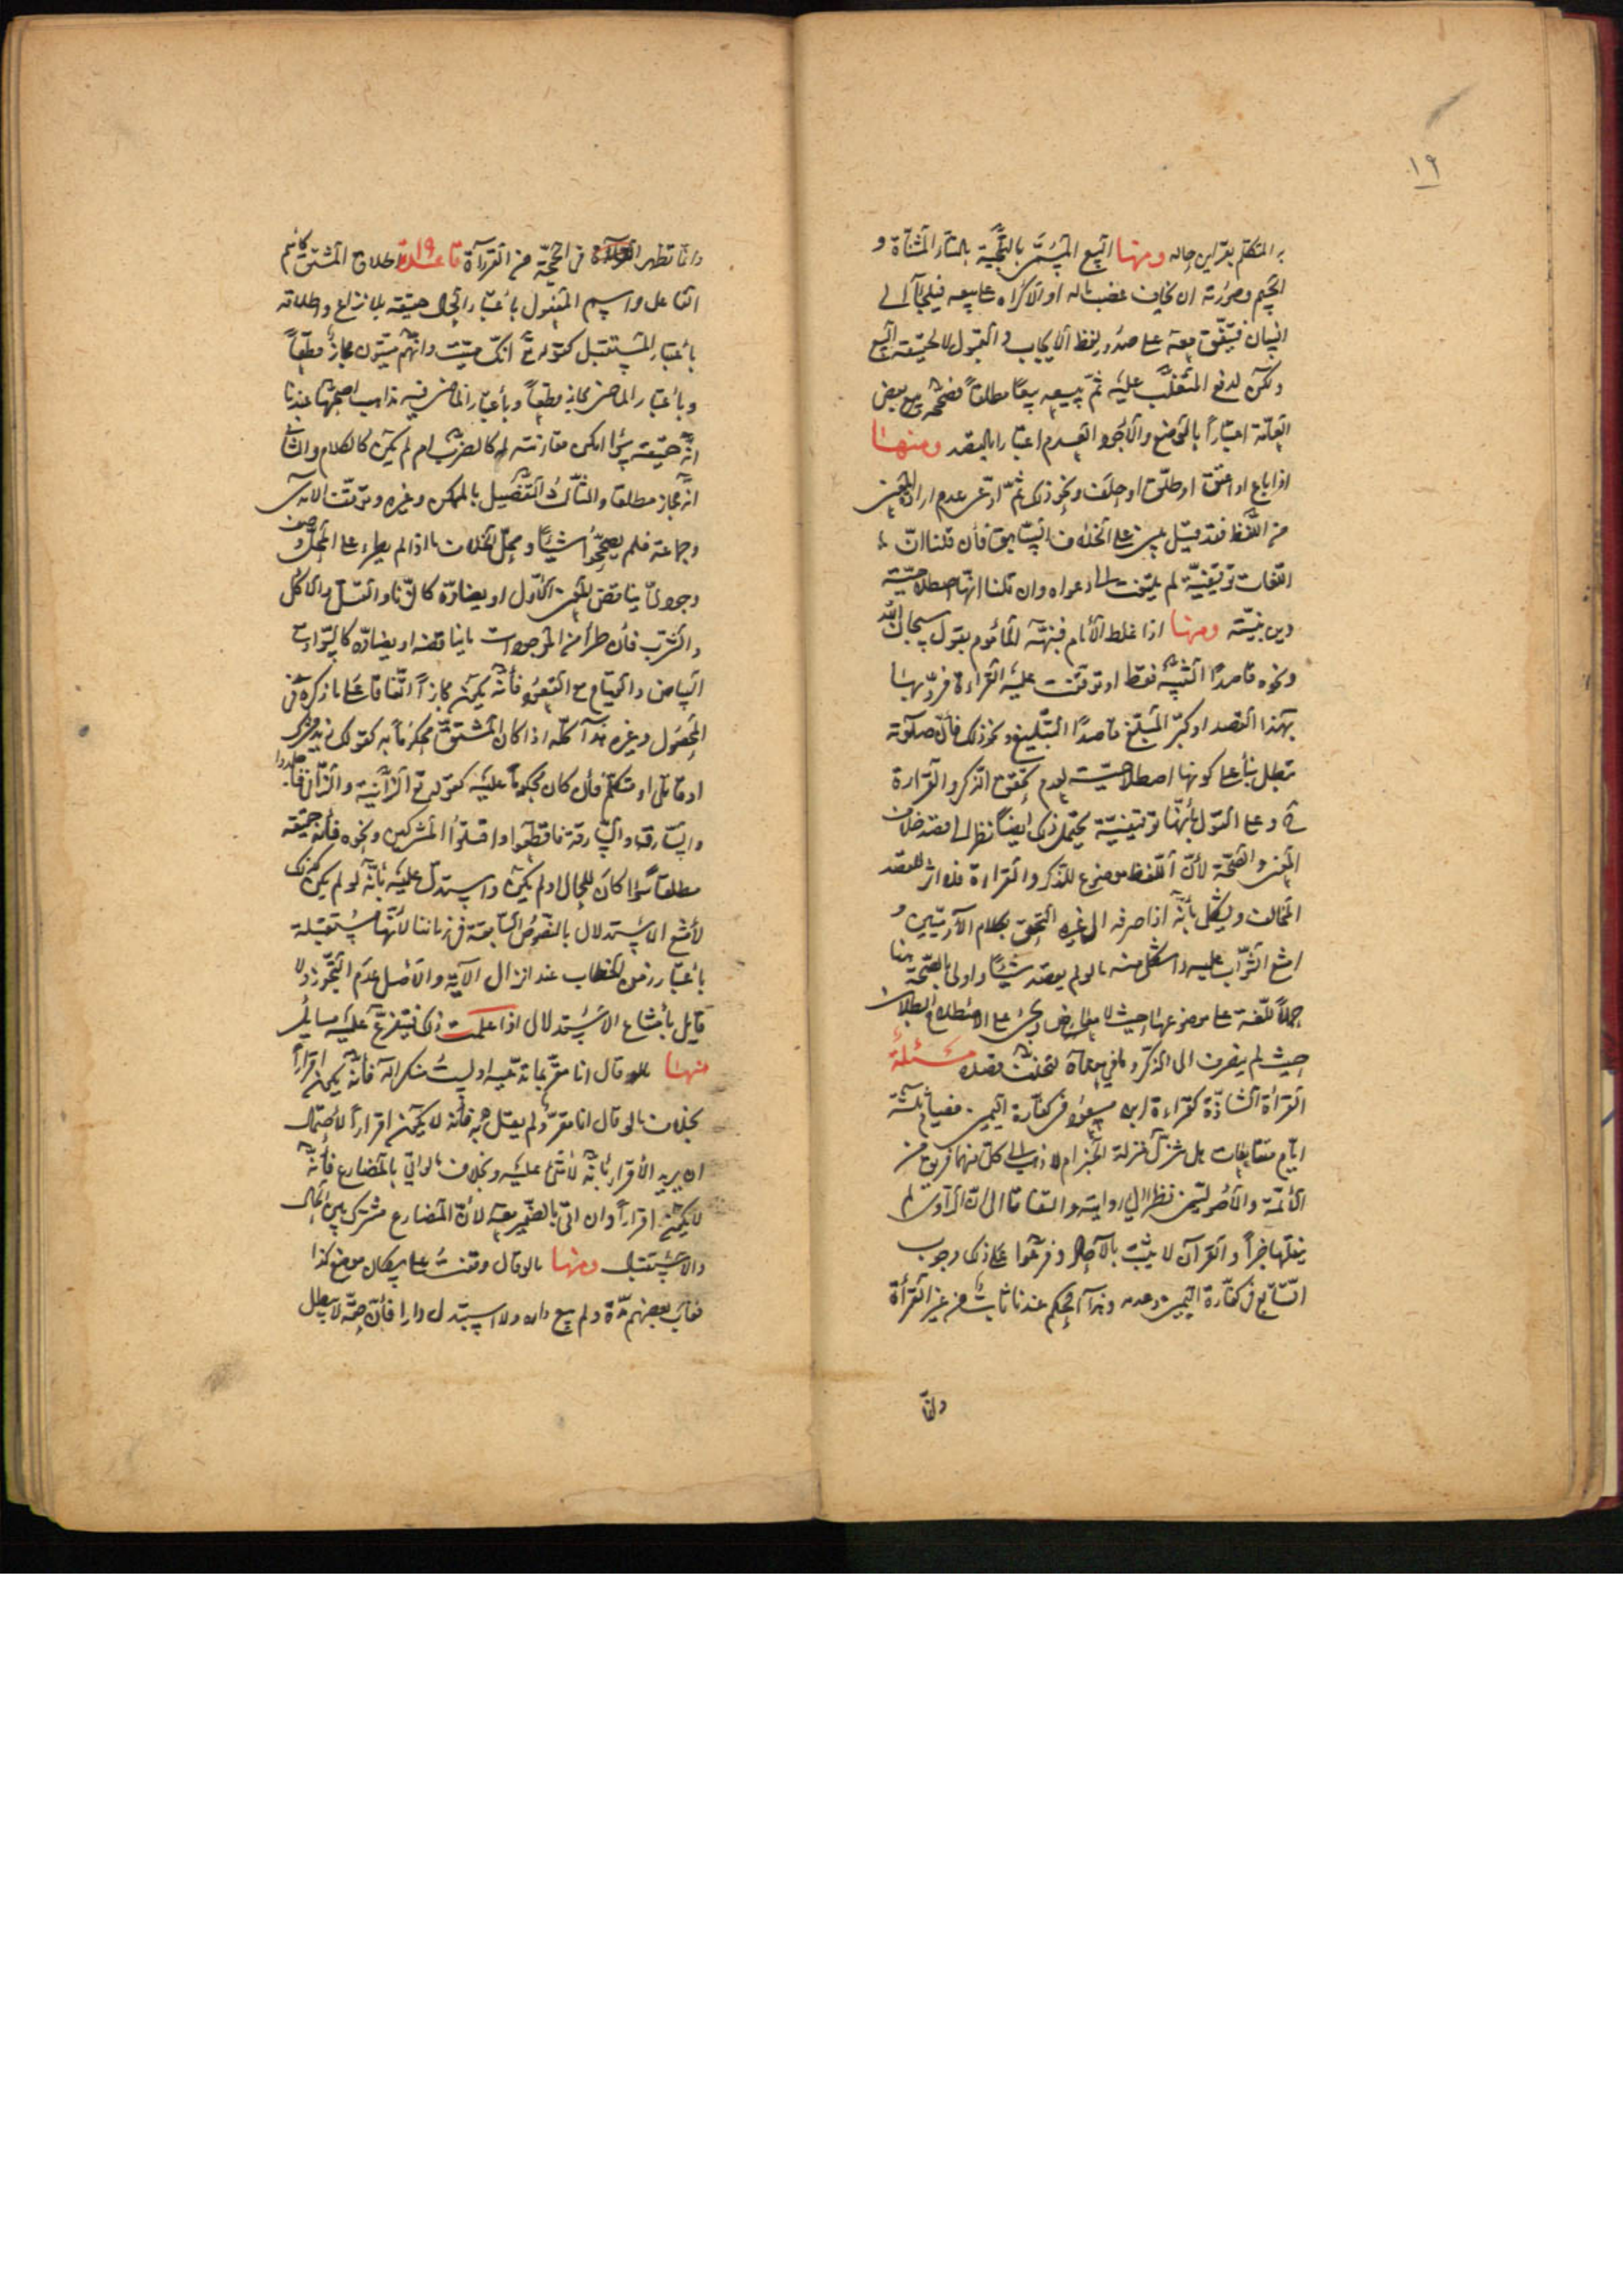 ١٩
به المتكلم بقراين حاله ومنها البيع المسمى بالتلجية بالتاء المثناة و
الجيم وصورته ان يخاف غصب ماله او الاكراه على بيعه فيلجأ الى
انسان فيتفق معه على صدور لفظ الايجاب والقبول لا لحقيقة البيع
ولكن لدفع المتغلب عليه ثم يبيعه بيعا مطلقا فصححه مع بعض
العامة اعتبارا بالوضع والاجود العدم اعتبارا بالقصد ومنها
اذا باع او اعتق او طلق او حلف ونحو ذلك ثم ادعى عدم ارادة المعنى
من اللفظ فقد قيل يبنى على الخلاف السابق فان قلنا ان
اللغات توقيفية لم يلتفت الى دعواه وان قلنا انها اصطلاحية
دين بنيته ومنها اذا غلط الامام فنبهه الماموم بقول سبحان الله
ونحوه قاصدا التنبيه فقط او توقفت عليه القراءة فرد بها
بهذا القصد او كبر المبلغ قاصدا التبليغ ونحو ذلك فان صلوته
تبطل بناء على كونها اصطلاحية لعدم تحقق الذكر والقراءة
ح وعلى القول بأنها توقيفية يحتمل ذلك ايضا نظر الى قصد خلاف
المعنى والصحة لأن اللفظ موضوع للذكر والقراءة فلا اثر للقصد
المخالف ويشكل بأنه اذا صرفه الى غيره التحق بكلام الآدميين و
امتنع الثواب عليه واشكل منه ما لو لم يقصد شيئا واولى بالصحة هنا
حملا للغة على موضوعها حيث لا معارض ويجئ على الاصطلاح البطلان
حيث لم يصرف الى الذكر وما في معناه لتخلف قصده مسئلة
القرأة الشاذة كقراءة ابن مسعود في كفارة اليمين فصيام ثلثة
ايام متتابعات هل تنزل منزلة الخبر ام لا ذهب الى كل منهما فريق من
الأئمة والأصوليين نظرا الى روايته والتفاتا الى ان الراوى لم
ينقلها خبرا والقرآن لا يثبت بالآحاد وفرعوا على ذلك وجوب
التتابع في كفارة اليمين وعدمه وهذا الحكم عندنا ثابت من غير القرأة
وانما
وانما تظهر الفائدة في الحجية من القراءة قاعدة ١٩ اطلاق المشتق كاسم
الفاعل واسم المفعول باعتبار الحال حقيقة بلا نزاع واطلاقه
باعتبار المستقبل كقوله تع انك ميت وانهم ميتون مجاز قطعا
وباعتبار الماضى مجاز قطعا وباعتبار الماضى فيه مذاهب اصحها عندنا
انه حقيقة سواء امكن مقارنته له كالضرب ام لم يكن كالكلام والثانى
انه مجاز مطلقا والثالث التفصيل بالممكن وغيره وتوقف الامدى
وجماعة فلم يصححوا شيئا ومحل الخلاف ما اذا لم يطرء على المحل وصف
وجودى يناقض المعنى الاول او يضاده كالزنا والقتل والاكل
والشرب فان طرأ من الموجودات ما يناقضه او يضاده كالسواد مع
البياض والقيام مع القعود فأنه يكون مجازا اتفاقا على ما ذكره في
المحصول وغيره هذا كله اذا كان المشتق محكوما به كقولك زيد مشرك
او قاتل او متكلم فان كان محكوما عليه كقوله تع الزانية والزانى فاجلدوا
والسارق والسارقة فاقطعوا واقتلوا المشركين ونحوه فانه حقيقة
مطلقا سواء كان للحال او لم يكن واستدل عليه بأنه لو لم يكن كذلك
لامتنع الاستدلال بالنصوص السابقة في زماننا لأنها مستقبلة
باعتبار زمن الخطاب عند انزال الآية والاصل عدم التجوز ولا
قايل بامتناع الاستدلال اذا علمت ذلك فيتفرع عليه مسائل
منها ما لو قال انا مقر بما تدعيه او لست منكرا له فأنه يكون اقرارا
بخلاف ما لو قال انا مقر ولم يقل به فأنه لا يكون اقرارا لاحتمال
ان يريد الأقرار بأنه لا شئ عليه وبخلاف ما لو اتى بالمضارع فأنه
لا يكون اقرارا وان اتى بالضمير معه لأن المضارع مشترك بين الحال
والاستقبال ومنها ما لو قال وقفت على سكان موضع كذا
فغاب بعضهم مدة ولم يبع داره ولا استبدل دارا فأن حقه لا يبطل